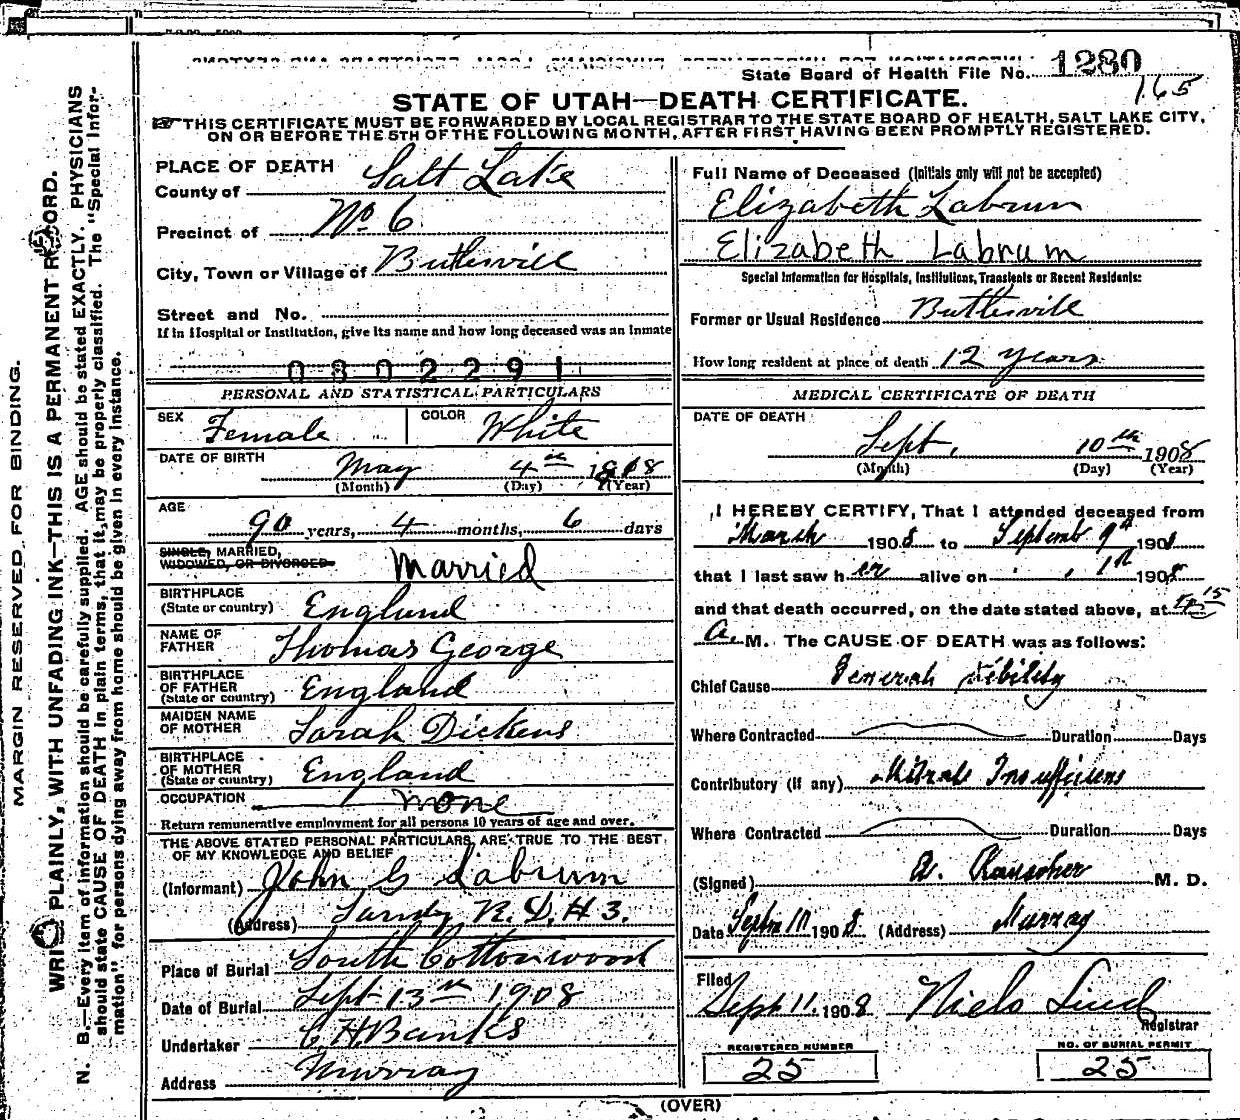 State Board of Health File No. 1280
165
STATE OF UTAH—DEATH CERTIFICATE.
THIS CERTIFICATE MUST BE FORWARDED BY LOCAL REGISTRAR TO THE STATE BOARD OF HEALTH, SALT LAKE CITY,
ON OR BEFORE THE 5TH OF THE FOLLOWING MONTH, AFTER FIRST HAVING BEEN PROMPTLY REGISTERED.
MARGIN RESERVED FOR BINDING.
WRITE PLAINLY, WITH UNFADING INK—THIS IS A PERMANENT RECORD.
N. B.—Every item of information should be carefully supplied. AGE should be stated EXACTLY. PHYSICIANS
should state CAUSE OF DEATH in plain terms, that it may be properly classified. The "Special Infor-
mation" for persons dying away from home should be given in every instance.
PLACE OF DEATH
County of Salt Lake
Precinct of No. 6
City, Town or Village of Butlerville
Street and No.
If in Hospital or Institution, give its name and how long deceased was an Inmate
0 3 0 2 2 9 1
PERSONAL AND STATISTICAL PARTICULARS
SEX Female COLOR White
DATE OF BIRTH May 4th 1818
(Month) (Day) (Year)
AGE
90 years, 4 months, 6 days
SINGLE, MARRIED,
WIDOWED, OR DIVORCED Married
BIRTHPLACE
(State or country) England
NAME OF
FATHER Thomas George
BIRTHPLACE
OF FATHER
(State or country) England
MAIDEN NAME
OF MOTHER Sarah Dickens
BIRTHPLACE
OF MOTHER
(State or country) England
OCCUPATION none
Return remunerative employment for all persons 10 years of age and over.
THE ABOVE STATED PERSONAL PARTICULARS ARE TRUE TO THE BEST
OF MY KNOWLEDGE AND BELIEF
(Informant) John G Labrum
(Address) Sandy R. D. # 3.
Place of Burial South Cottonwood
Date of Burial Sept 13th 1908
Undertaker C. H. Banks
Address Murray
Full Name of Deceased (Initials only will not be accepted)
Elizabeth Labrum
Elizabeth Labrum
Special Information for Hospitals, Institutions, Transients or Recent Residents:
Former or Usual Residence Butlerville
How long resident at place of death 12 years
MEDICAL CERTIFICATE OF DEATH
DATE OF DEATH
Sept. 10th 1908
(Month) (Day) (Year)
I HEREBY CERTIFY, That I attended deceased from
March 1908 to Septemb 9th 1908
that I last saw her alive on 1908
and that death occurred, on the date stated above, at 15
A. M. The CAUSE OF DEATH was as follows:
Chief Cause General debility
Where Contracted Duration Days
Contributory (if any) Mitral Insufficiens
Where Contracted Duration Days
(Signed) A. Rauscher M. D.
Date Septm 10 1908 (Address) Murray
Filed
Sept 11. 1908 Niels Lind
Registrar
REGISTERED NUMBER
25
NO. OF BURIAL PERMIT
25
(OVER)